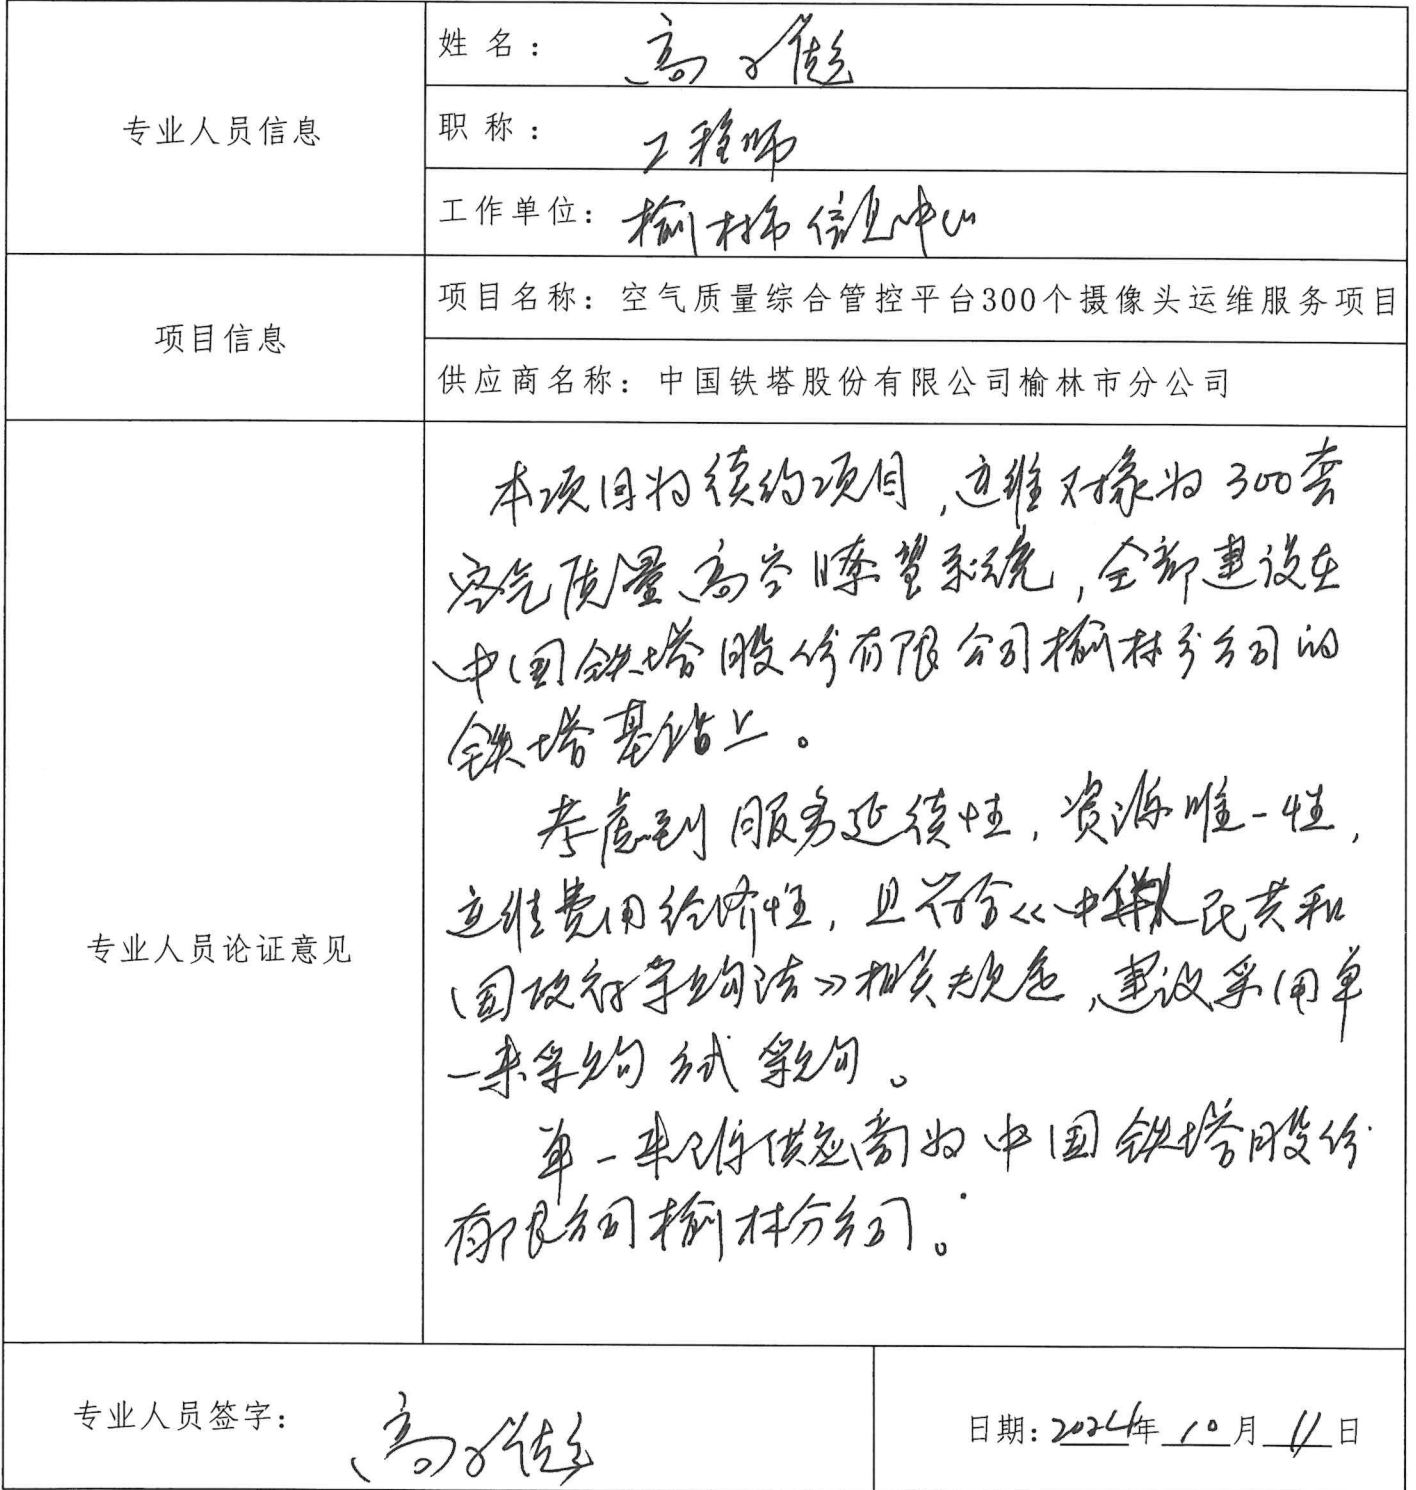 专业人员信息
姓名：高
职称：工程师
工作单位：榆林市信息中心
项目信息
项目名称：空气质量综合管控平台300个摄像头运维服务项目
供应商名称：中国铁塔股份有限公司榆林市分公司
专业人员论证意见
本项目为续约项目，运维对象为300套
空气质量高空瞭望系统，全部建设在
中国铁塔股份有限公司榆林分公司的
铁塔基站上。
考虑到服务延续性，资源唯一性，
运维费用经济性，且符合《中华人民共和
国政府采购法》相关规定，建议采用单
一来源采购方式采购。
单一来源供应商为中国铁塔股份
有限公司榆林分公司。
专业人员签字：高
日期：2024年10月11日